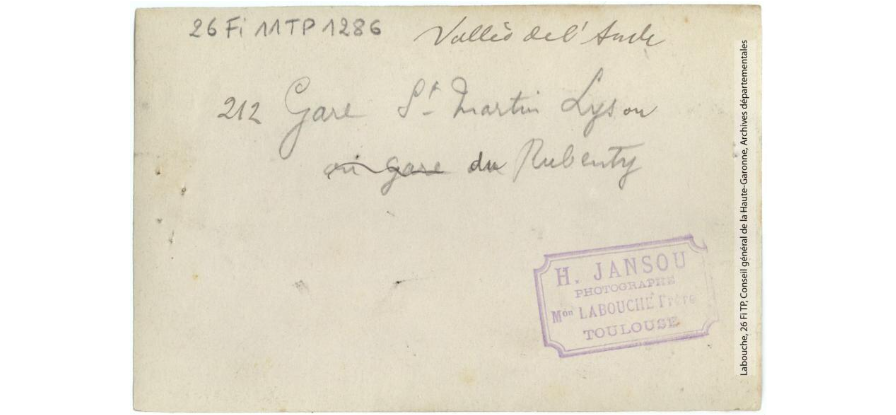 26 Fi 11 TP 1286
Vallès de l'Aude
212 Gare St Martin Lys ou
ou gare du Rubenty
H. JANSOU
PHOTOGRAPHE
Mon LABOUCHE Frère
TOULOUSE
Labouche, 26 Fi TP, Conseil général de la Haute-Garonne, Archives départementales